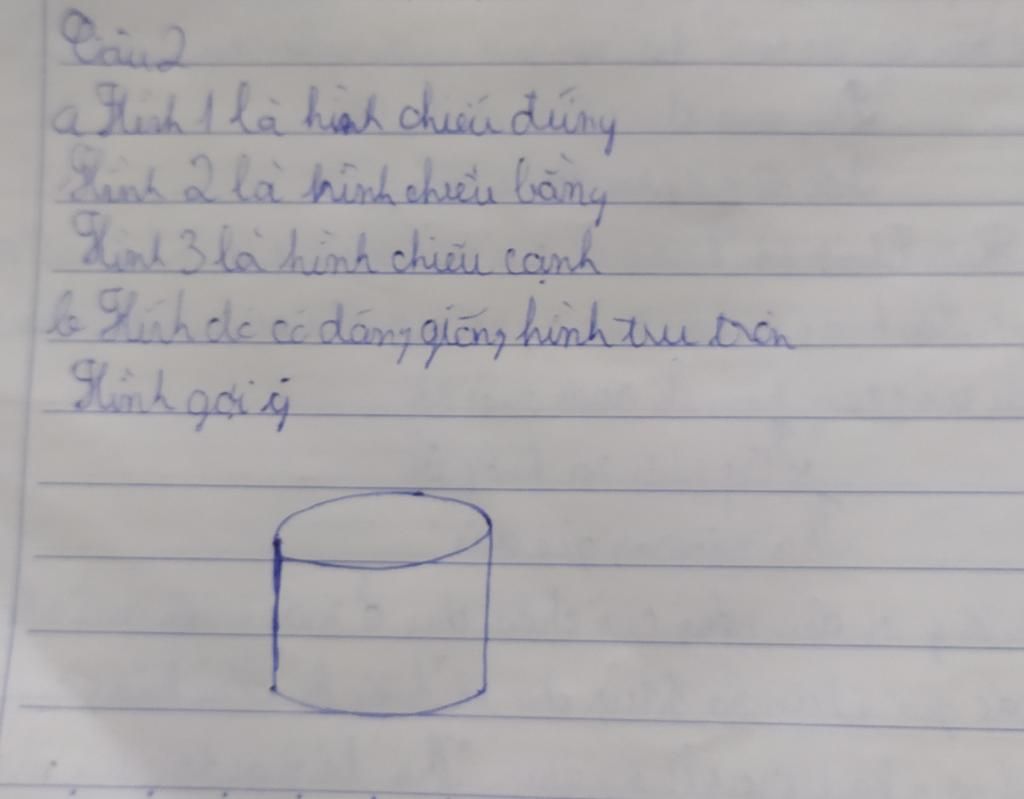 Câu 2
a Hình 1 là hình chiếu đứng
Hình 2 là hình chiếu bằng
Hình 3 là hình chiếu cạnh
b Hình đó có dáng giống hình trụ tròn
Hình gợi ý